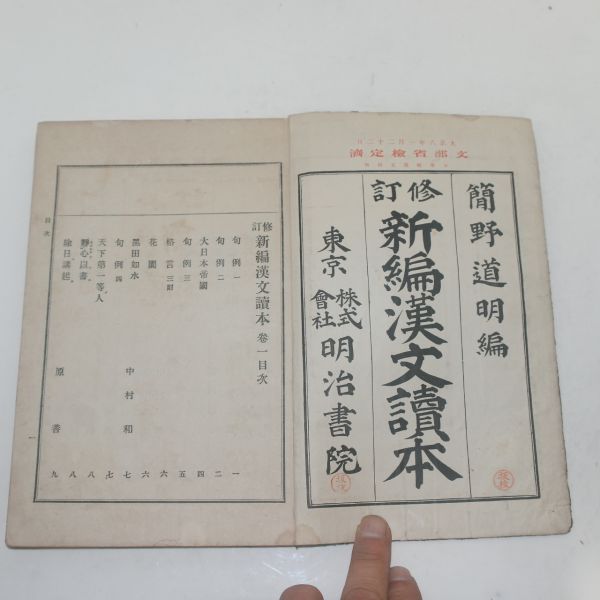 大正八年一月二十二日
文部省檢定濟
簡野道明編
修訂
新編漢文讀本
東京 株式會社 明治書院
修訂 新編漢文讀本 卷一目次
句例一 一
句例二 二
大日本帝國 四
句例三 五
格言三則 六
花園 六
黑田如水 中村和 七
句例四 七
天下第一等人 八
靜心以書 八
原善 九
目次
一